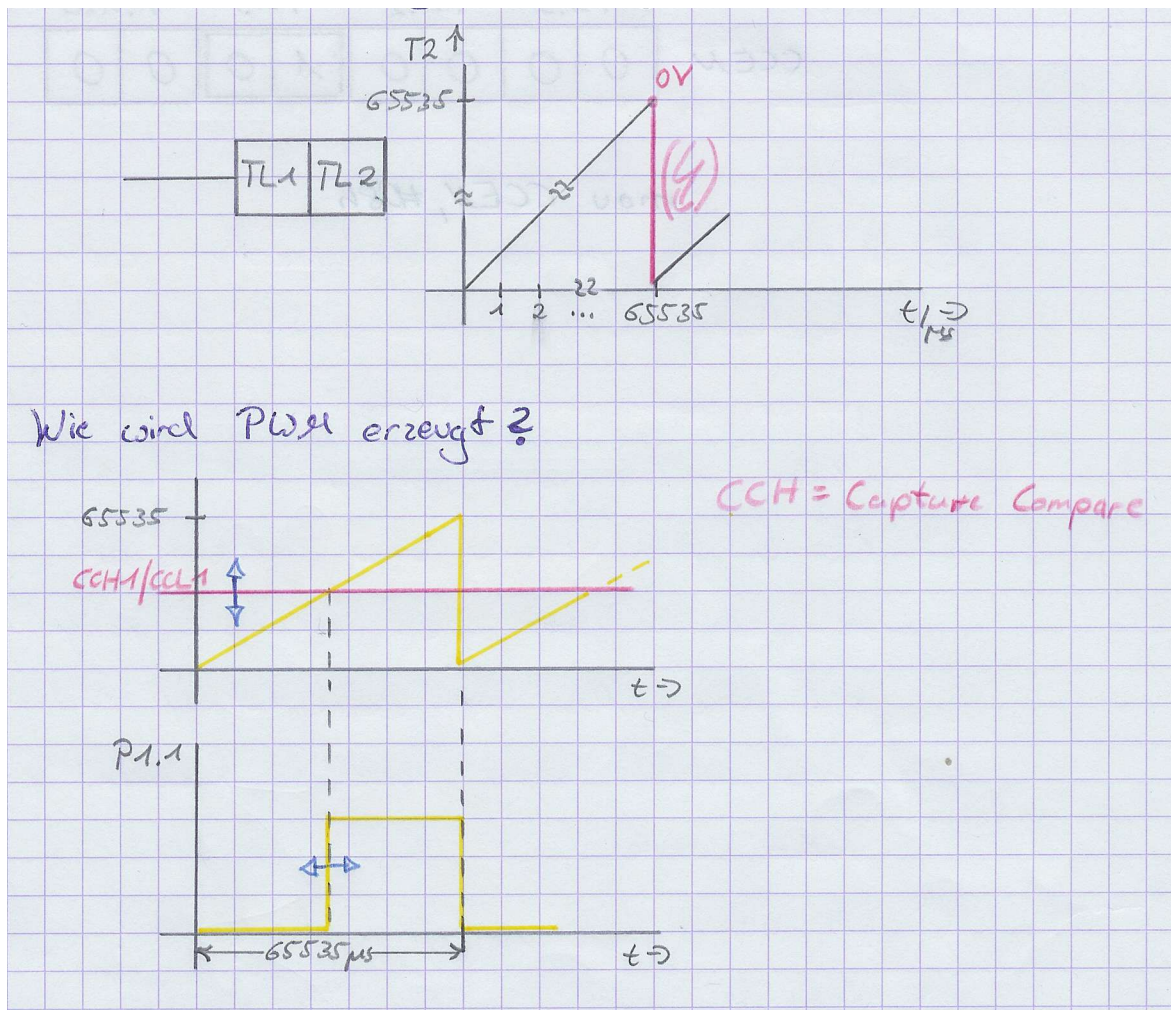 T2 ↑
65535
0V
TL1 TL2
1 2 ... 65535
t/µs →
Wie wird PWM erzeugt?
CCH = Capture Compare
65535
CCH1/CCL1
t →
P1.1
65535µs
t →